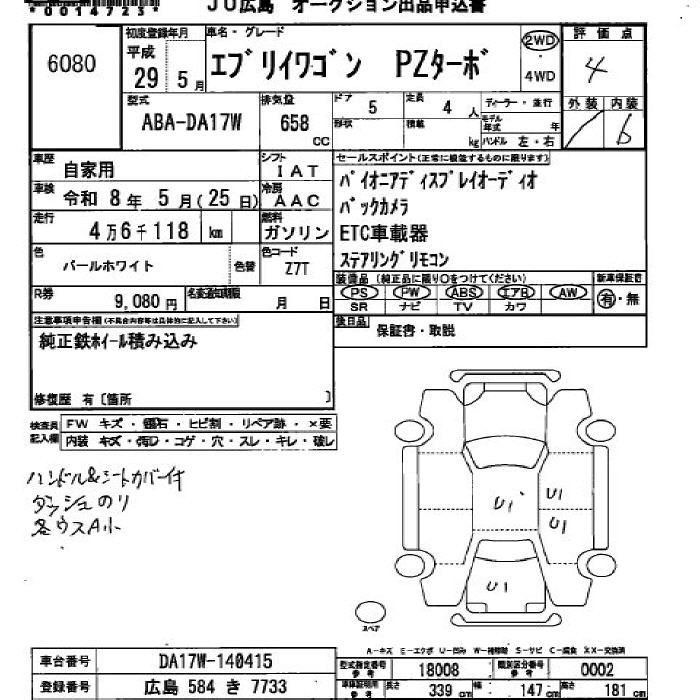 *0014723*
JU広島 オークション出品申込書
6080
初度登録年月
平成
29 5月
車名・グレード
エブリイワゴン PZターボ
2WD
・
4WD
評価点
4
型式
ABA-DA17W
排気量
658
CC
ドア 5
定員 4 人
形状
積載 kg
ディーラー・並行
モデル年式 年
ハンドル 左・右
外装 内装
b
車歴
自家用
シフト
IAT
車検
令和 8年 5月(25日)
冷房
AAC
走行
4万6千118 km
燃料
ガソリン
色
パールホワイト
色替
色コード
Z7T
R券
9,080円
名変通知期限
月 日
セールスポイント(正常に機能するものに限ります)
パイオニアディスプレイオーディオ
バックカメラ
ETC車載器
ステアリングリモコン
装備品 (純正品に限り○をつけてください)
新車保証書
PS PW ABS エアB AW
SR ナビ TV カワ
有・無
後日品
保証書・取説
注意事項申告欄(不具合内容等は具体的に記入して下さい)
純正鉄ホイール積み込み
修復歴 有〔箇所 〕
検査員
記入欄
FW キズ・飛石・ヒビ割・リペア跡・×要
内装 キズ・汚れ・コゲ・穴・スレ・キレ・破レ
ハンドル&シートカバー付
ダッシュのり
各ウスA小
U1
U1
U1
U1
スペア
A-キズ E-エクボ U-凹み W-補修跡 S-サビ C-腐食 XX-交換済
車台番号
DA17W-140415
登録番号
広島 584 き 7733
型式指定番号
参考
18008
類別区分番号
参考
0002
車検証明用
参考
長さ 339 cm 幅 147 cm 高さ 181 cm